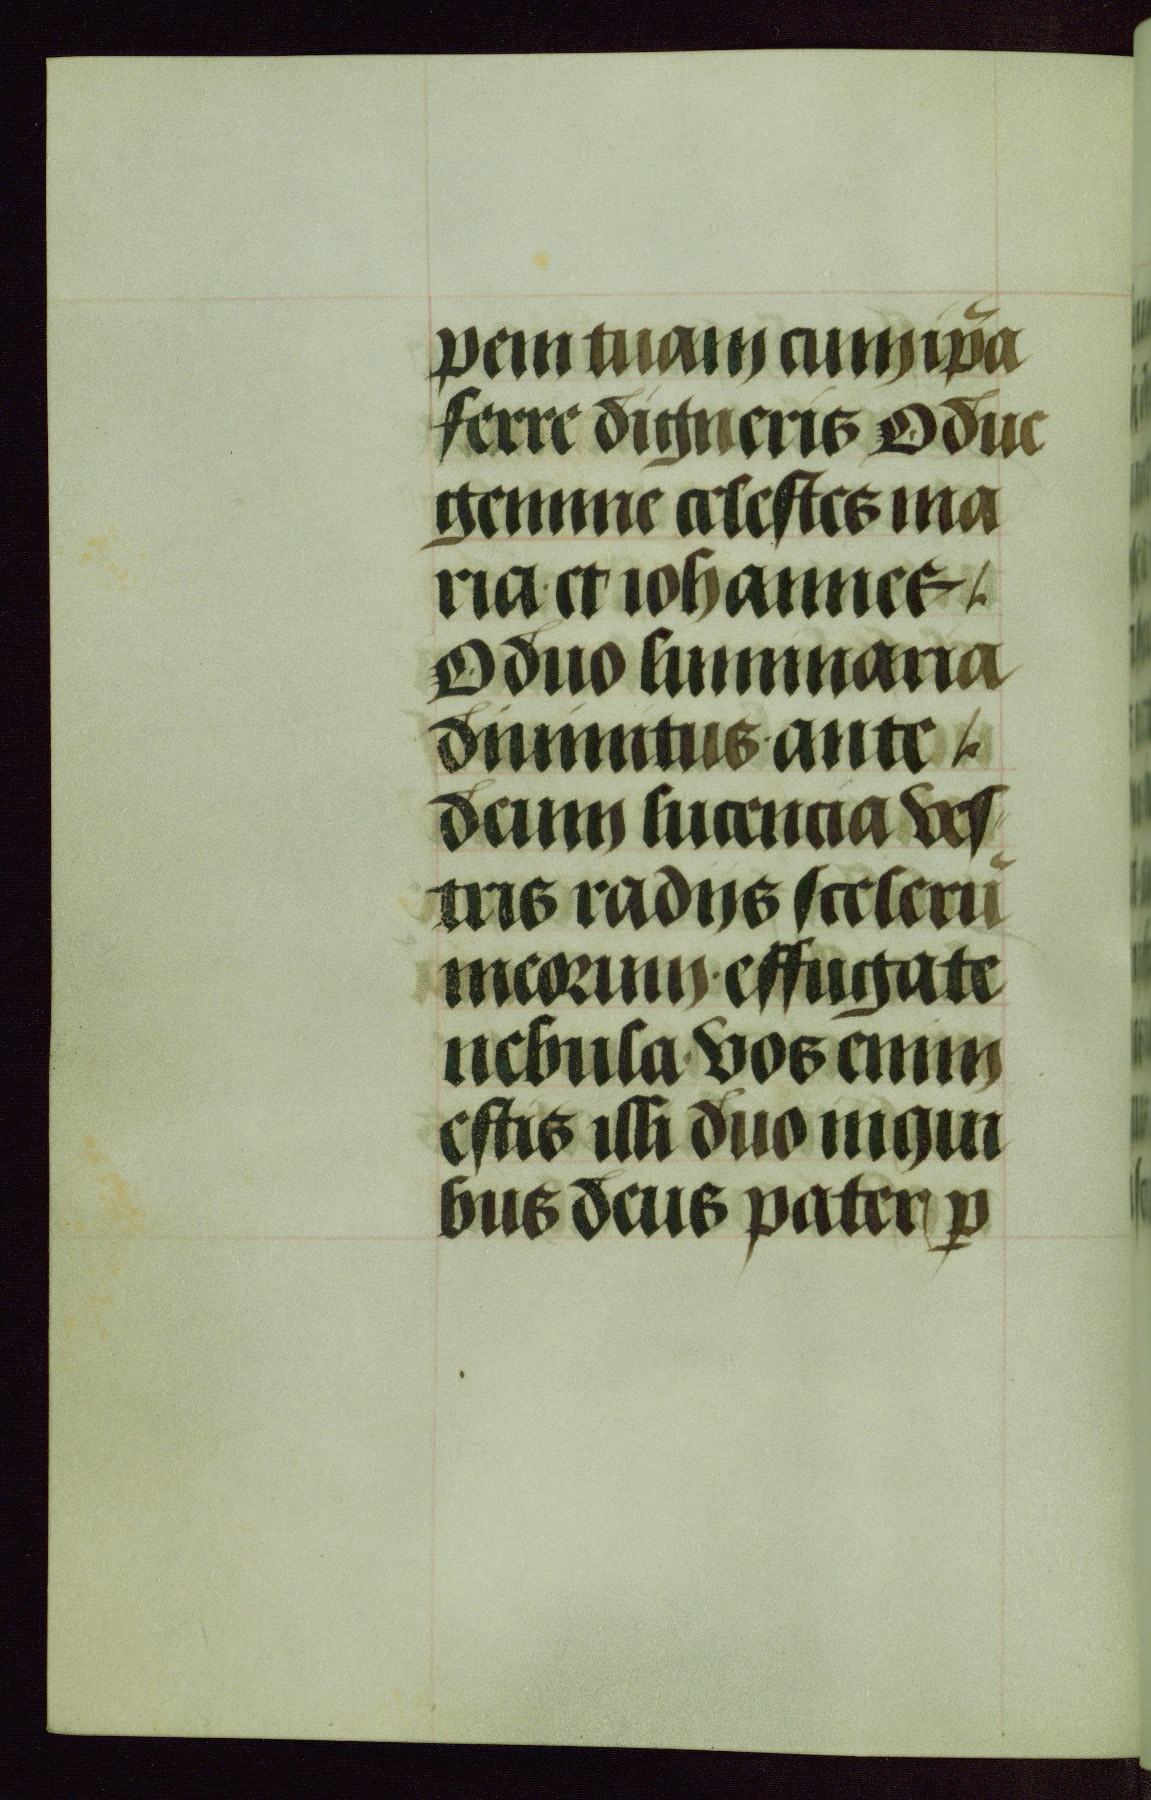 pem tuam cum ip̃a
ferre digneris O due
gemme celestes ma
ria· et iohannes
O duo luminaria
diuinitus· ante
deum lucencia ves
tris radijs scelerũ
meorum· effugate
nebula· vos enim
estis illi duo inqui
bus deus pater ꝑ